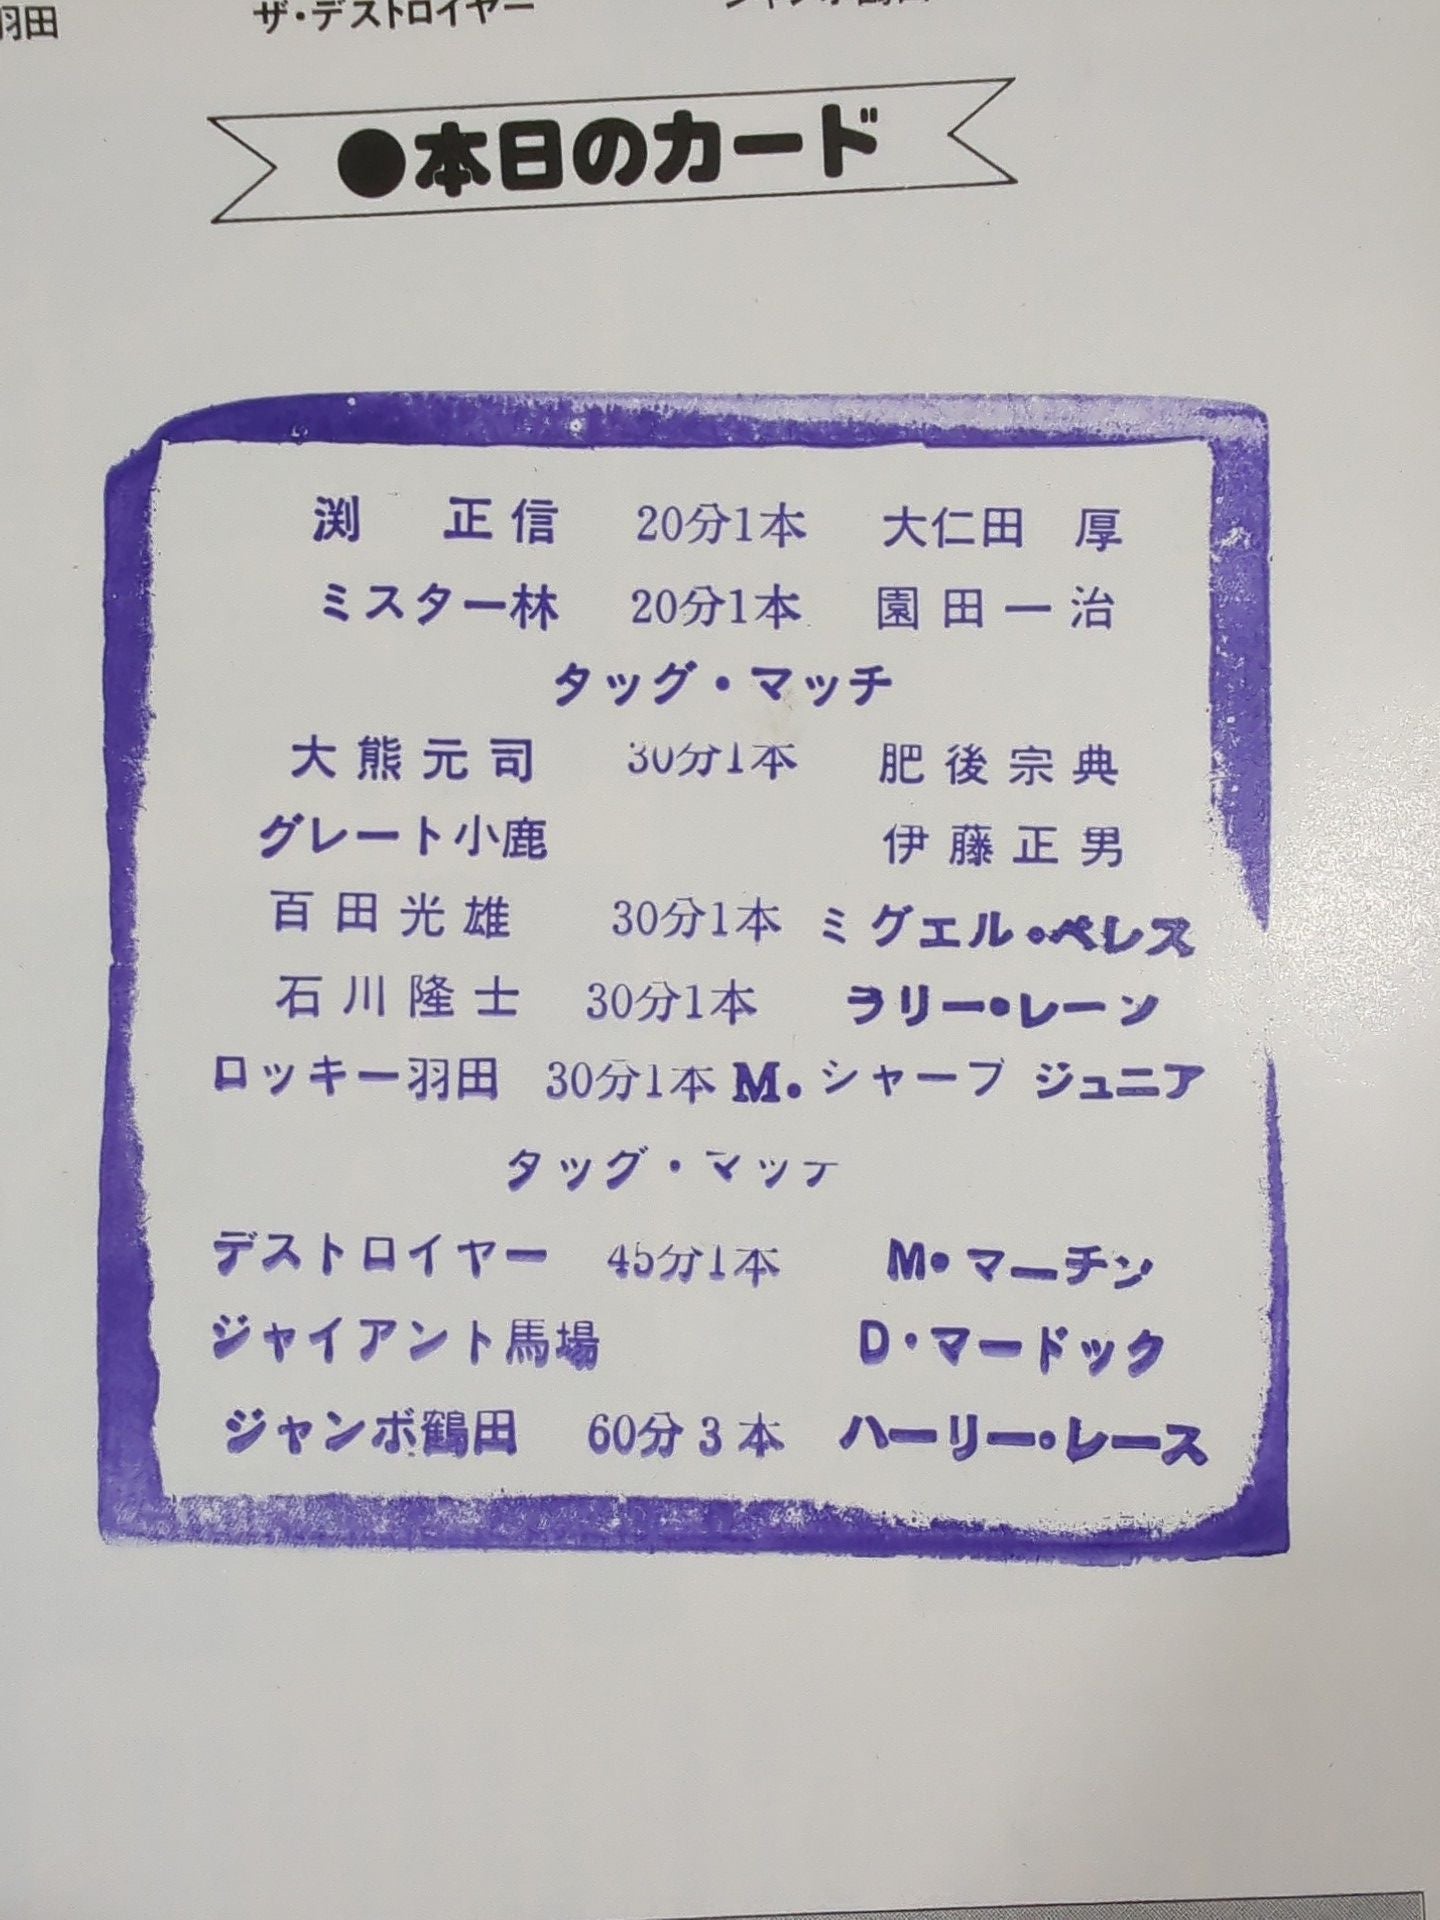 羽田　ザ・デストロイヤー　ジャンボ鶴田
●本日のカード
渕　正信　20分1本　大仁田　厚
ミスター林　20分1本　園田一治
タッグ・マッチ
大熊元司　30分1本　肥後宗典
グレート小鹿　伊藤正男
百田光雄　30分1本　ミグエル・ペレス
石川隆士　30分1本　ラリー・レーン
ロッキー羽田　30分1本　M・シャープ ジュニア
タッグ・マッチ
デストロイヤー　45分1本　M・マーチン
ジャイアント馬場　D・マードック
ジャンボ鶴田　60分3本　ハーリー・レース